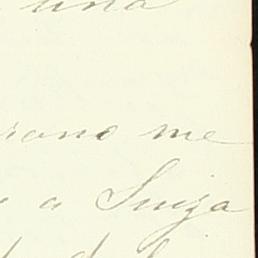 una
rano me
a Suiza